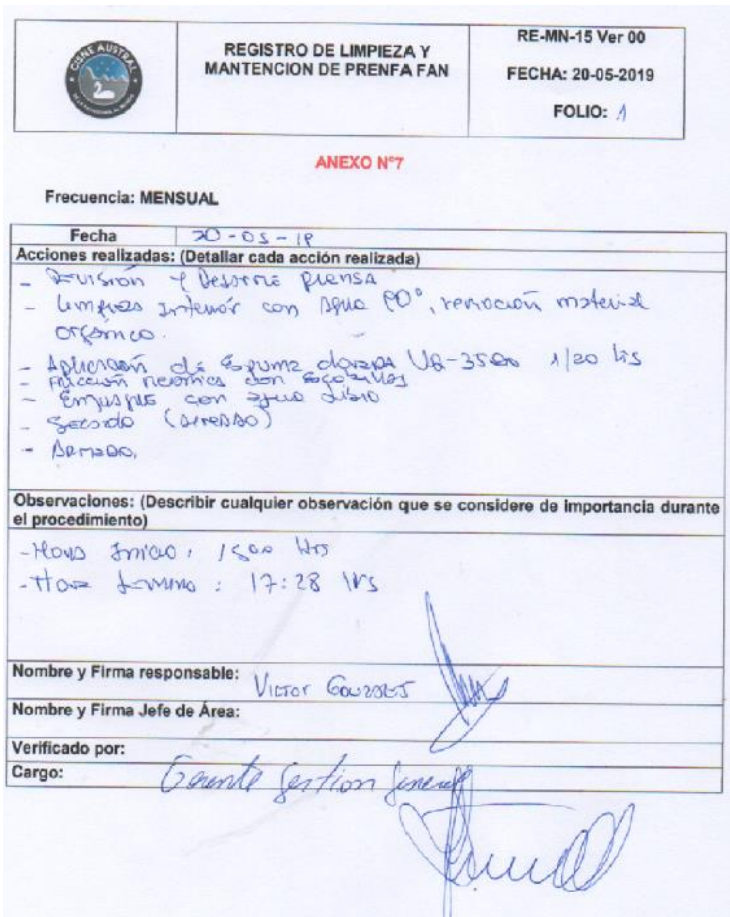 CISNE AUSTRAL
REGISTRO DE LIMPIEZA Y
MANTENCION DE PRENFA FAN
RE-MN-15 Ver 00
FECHA: 20-05-2019
FOLIO: 1
ANEXO N°7
Frecuencia: MENSUAL
Fecha
Acciones realizadas: (Detallar cada acción realizada)
- Revisión y Desarme prensa
- Limpieza Interior con Agua, remoción material
orgánico.
- Aplicación de Espuma clorada 1/20 lts
- fricción con Escobillas
- Enjuague con agua
- Secado
- Armado.
Observaciones: (Describir cualquier observación que se considere de importancia durante
el procedimiento)
- Hora Inicio: 1500 Hrs
- Hora termino : 17:28 Hrs
Nombre y Firma responsable: Victor Gonzalez
Nombre y Firma Jefe de Área:
Verificado por:
Cargo: Gerente Gestion General